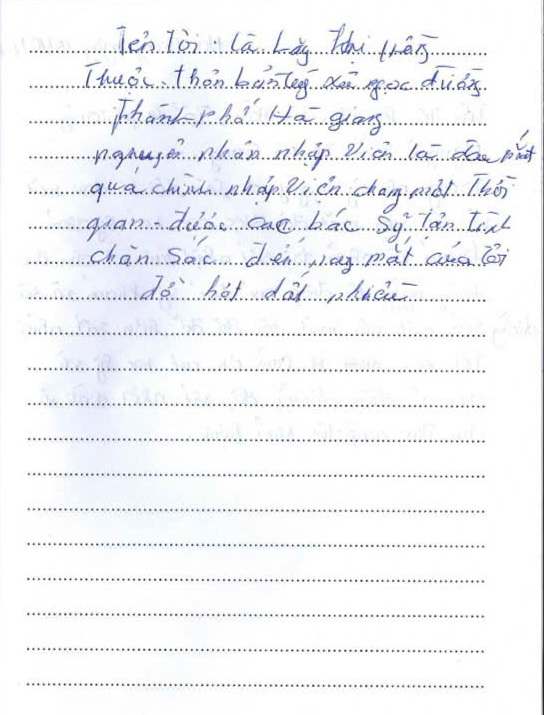 Tên Tôi: là Lây thị
Thuộc. thôn bản xã ngọc đường
Thành phố Hà giang
nguyên nhân nhập viên là đau mắt
quá chình nhập viên chong một Thời
gian. được các bác sỹ tận tình
chăn sóc đến nay mắt của tôi
đỡ hót dất nhiều